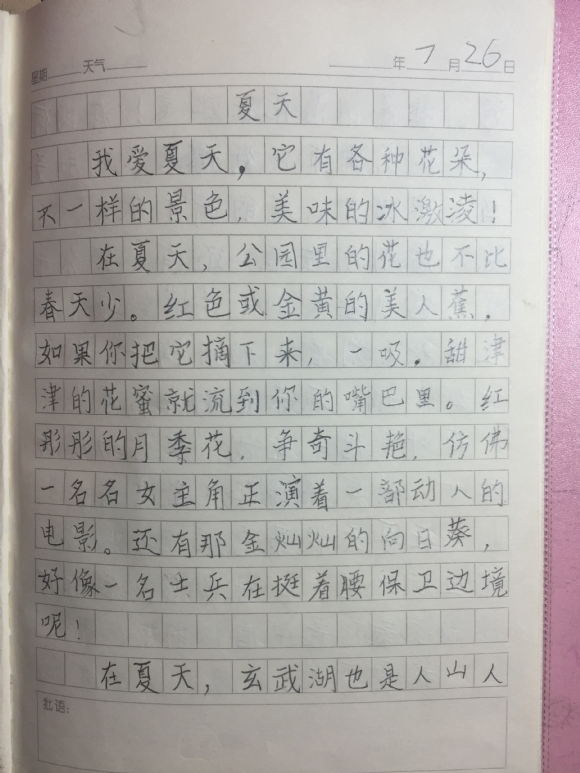 星期 天气 年 7 月 26 日
夏天
我爱夏天，它有各种花朵，
不一样的景色，美味的冰激凌！
在夏天，公园里的花也不比
春天少。红色或金黄的美人蕉，
如果你把它摘下来，一吸，甜津
津的花蜜就流到你的嘴巴里。红
彤彤的月季花，争奇斗艳，仿佛
一名名女主角正演着一部动人的
电影。还有那金灿灿的向日葵，
好像一名士兵在挺着腰保卫边境
呢！
在夏天，玄武湖也是人山人
批语：